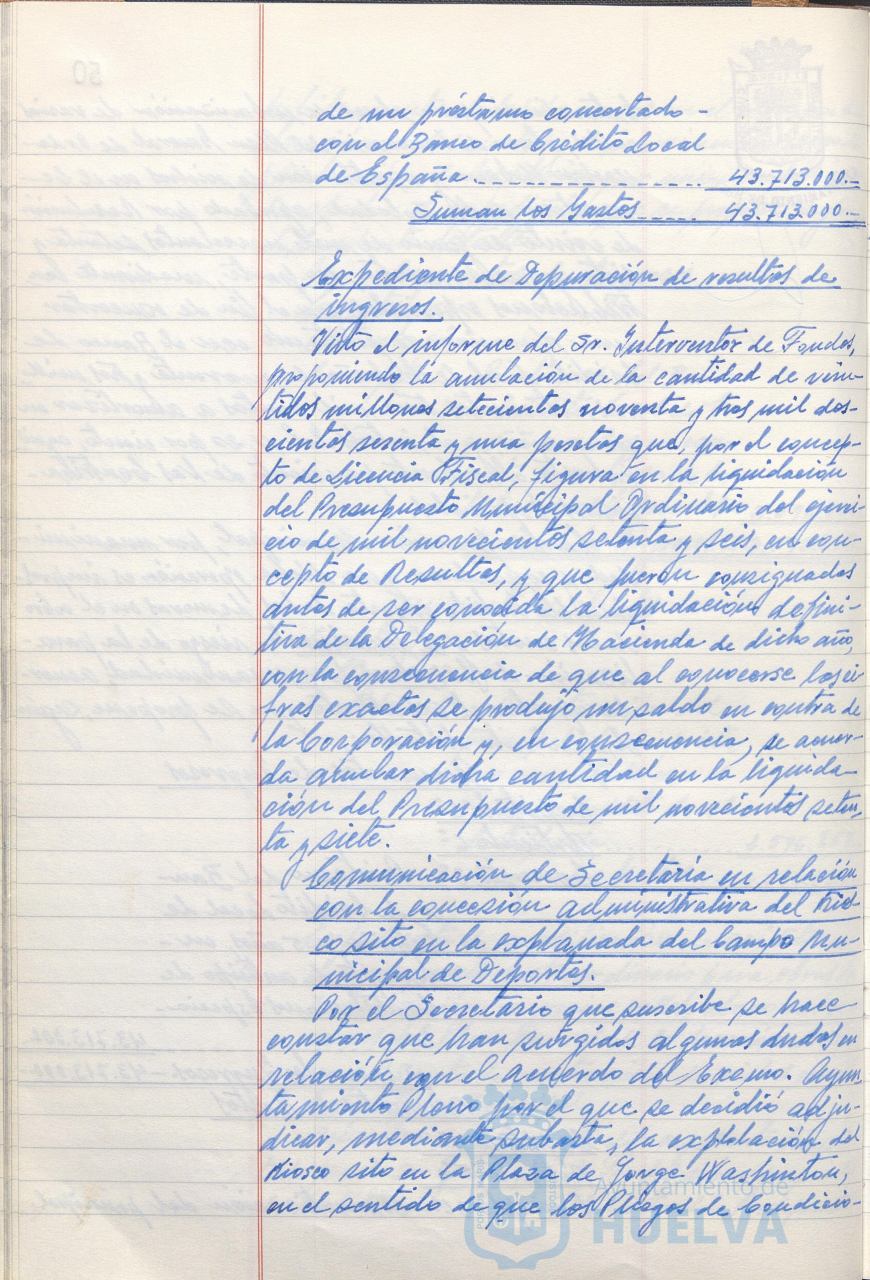 de un préstamo concertado -
con el Banco de Crédito Local
de España. ------------------ 43.713.000.-
Suman los Gastos ----- 43.713.000.-
Expediente de Depuración de resultas de
ingresos.
Visto el informe del Sr. Interventor de Fondos,
proponiendo la anulación de la cantidad de vein-
tidos millones setecientos noventa y tres mil dos-
cientos sesenta y una pesetas que, por el concep-
to de Licencia Fiscal, figura en la liquidación
del Presupuesto Municipal Ordinario del ejerci-
cio de mil novecientos setenta y seis, en con-
cepto de Resultas, y que fueron consignadas
antes de ser conocida la liquidación defini-
tiva de la Delegación de Hacienda de dicho año,
con la consecuencia de que al conocerse las ci-
fras exactas se produjo un saldo en contra de
la Corporación y, en consecuencia, se acuer-
da anular dicha cantidad en la liquida-
ción del Presupuesto de mil novecientos seten-
ta y siete.
Comunicación de Secretaría en relación
con la concesión administrativa del Kios-
co sito en la explanada del Campo Mu-
nicipal de Deportes.
Por el Secretario que suscribe se hace
constar que han surgidos algunas dudas en
relación con el acuerdo del Excmo. Ayun-
tamiento Pleno por el que se decidió adju-
dicar, mediante subasta, la explotación del
Kiosco sito en la Plaza de Jorge Washinton,
en el sentido de que los Pliegos de Condicio-
Ayuntamiento de
HUELVA